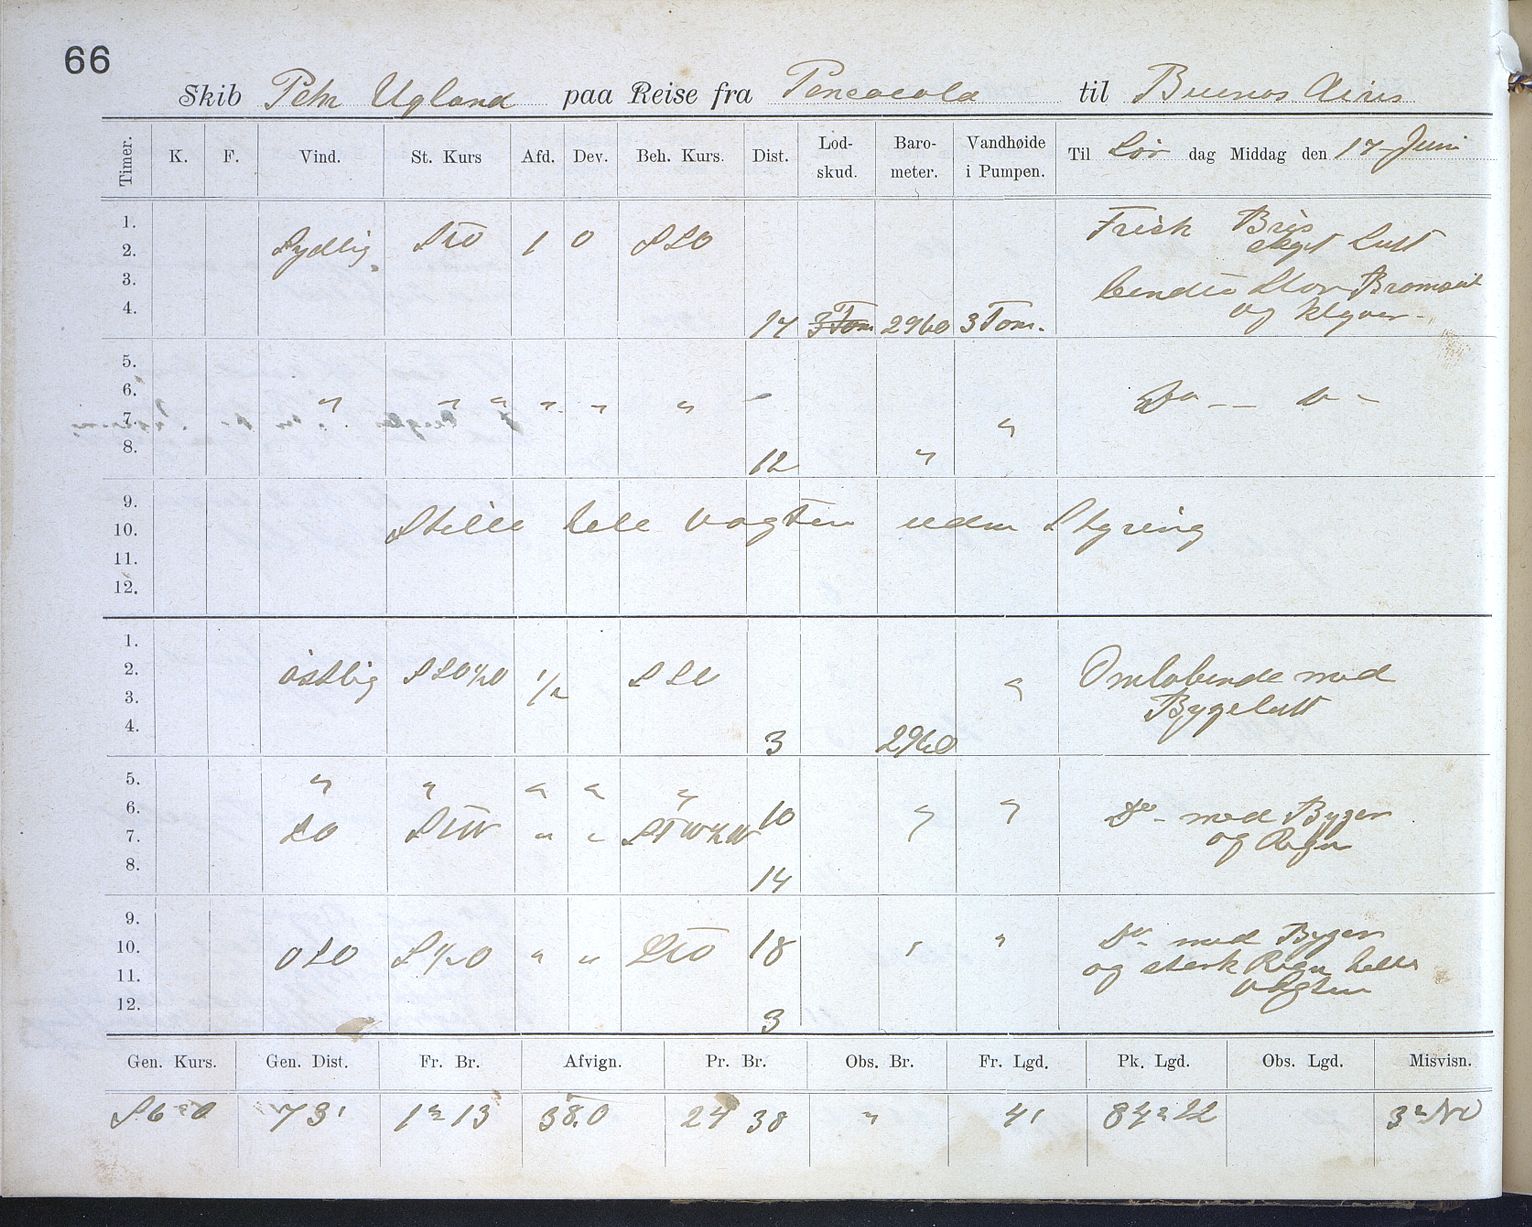 66
Skib Petr Ugland paa Reise fra Pencacola til Buenos Aires
Timer. K. F. Vind. St. Kurs Afd. Dev. Beh. Kurs. Dist. Lod-skud. Baro-meter. Vandhøide i Pumpen. Til Lør dag Middag den 17 Juni
1. Frisk Bris
2. Sydlig StO 1 0 SSO skyt Luft
3. Stor Bramseil
4. 17 3 Tom 2960 3 Tom. og Klyver
5.
6. " " " " " " Do
7. "
8. 12 "
9.
10. Stille hele Vagten uden Styring
11.
12.
1.
2. østlig SSO½O ½ SSO " Omløbende med
3. Bygeluft
4. 3 2960
5. " " " " "
6. 10 " " Do med Byger
7. SO StW " " StW½W og Regn
8. 14
9.
10. OSO S½O " " StO 18 " " Do med Byger
11. og sterk Regn hele
12. 3 Vagten
Gen. Kurs. Gen. Dist. Fr. Br. Afvign. Pr. Br. Obs. Br. Fr. Lgd. Pk. Lgd. Obs. Lgd. Misvisn.
S6°O 73' 1°13 38.0 24 38 " 41 84°22 3°NO